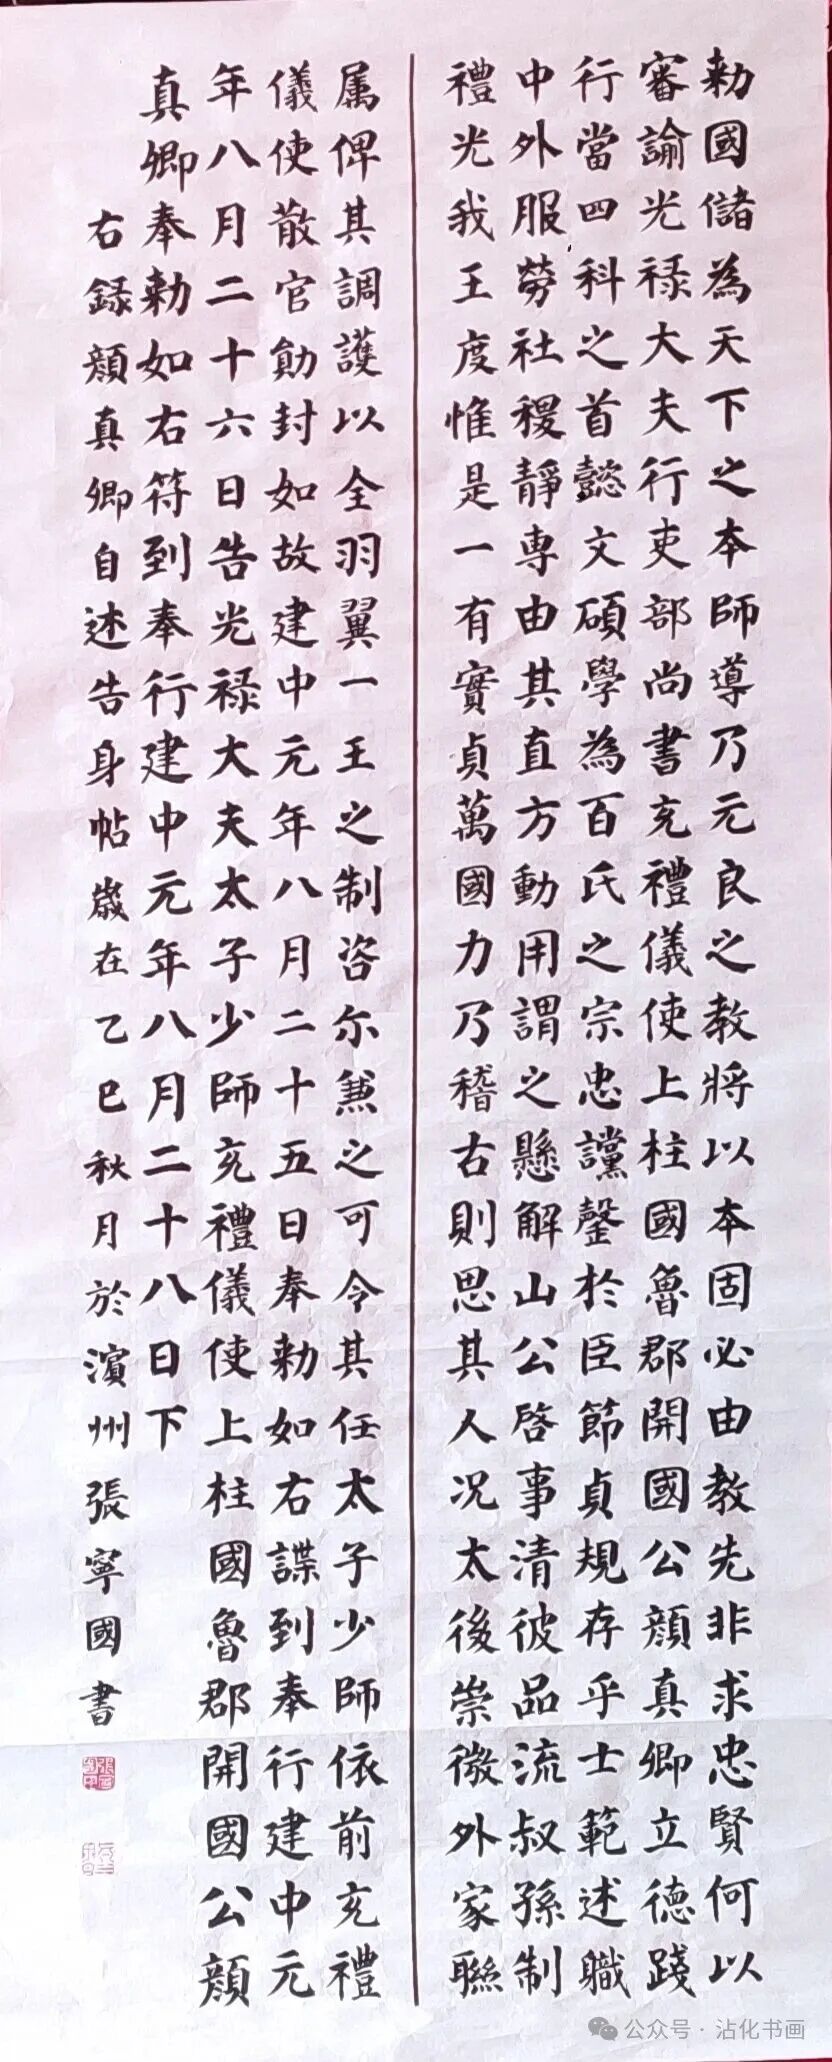 勑國儲為天下之本師導乃元良之教將以本固必由教先非求忠賢何以
審諭光祿大夫行吏部尚書充禮儀使上柱國魯郡開國公顏真卿立德踐
行當四科之首懿文碩學為百氏之宗忠讜罄於臣節貞規存乎士範述職
中外服勞社稷靜專由其直方動用謂之懸解山公啓事清彼品流叔孫制
禮光我王度惟是一有實貞萬國力乃稽古則思其人况太後崇徽外家聯
属俾其調護以全羽翼一王之制咨尔兼之可令其任太子少師依前充禮
儀使散官勛封如故建中元年八月二十五日奉勑如右諜到奉行建中元
年八月二十六日告光祿大夫太子少師充禮儀使上柱國魯郡開國公顏
真卿奉勑如右符到奉行建中元年八月二十八日下
右録顏真卿自述告身帖歲在乙巳秋月於濱州張寧國書
公众号·沾化书画